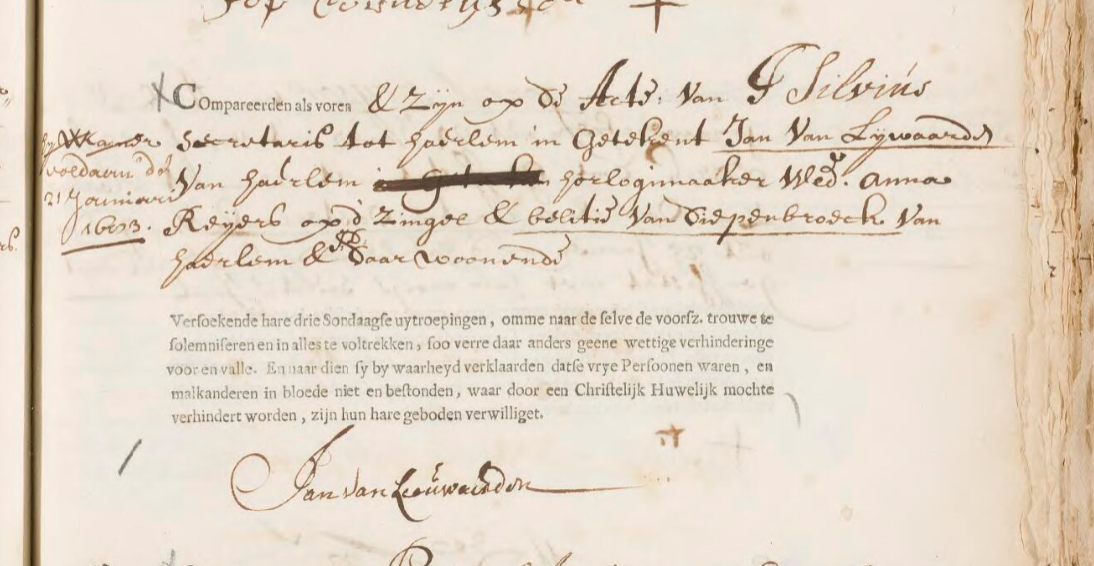 Compareerden als voren & Zijn op de Acte. van F Silvius
Secretaris tot haerlem in Getekent Jan Van Lywaarden
voldaan do
Van haerlem horlogimaaker Wed. anna
21 Januarij
Reijers op d Zingel & belitie Van Diepenbroeck Van
1693.
haerlem & daar woonende
Versoekende hare drie Sondaagse uytroepingen, omme naar de selve de voorsz. trouwe te
solemniseren en in alles te voltrekken, soo verre daar anders geene wettige verhinderinge
voor en valle. En naar dien sy by waarheyd verklaarden datse vrye Persoonen waren, en
malkanderen in bloede niet en bestonden, waar door een Christelijk Huwelijk mochte
verhindert worden, zijn hun hare geboden verwilliget.
Jan van Leeuwaerden